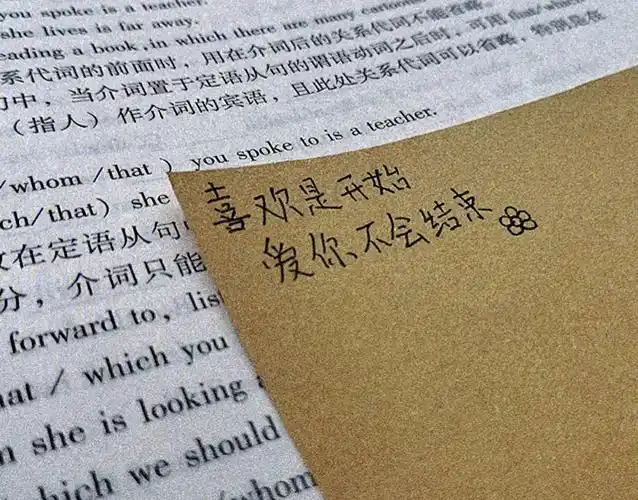 you spoke is a teacher
she lives is far away.
eading a book, in which there are many cartoon
系代词的前面时，用在介词后的关系代词不能省略。
中，当介词置于定语从句的谓语动词之后时，可用 that/whic
（指人）作介词的宾语，且此处关系代词可以省略，特别是在
/whom /that ) you spoke to is a teacher.
ch/that) she
在定语从句
分，介词只能
forward to, lis
at / which you
n she is looking
hich we should
/whom
喜欢是开始
爱你不会结束